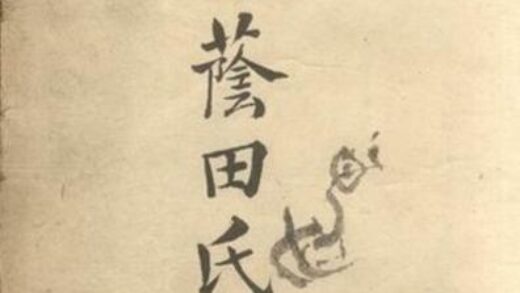 蔭田氏